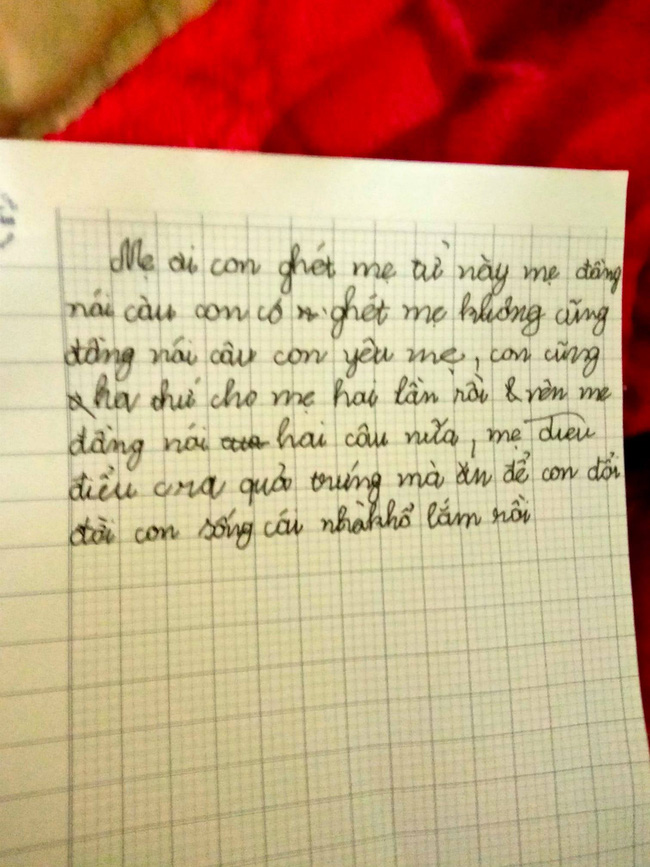 Mẹ ơi con ghét mẹ từ này mẹ đừng
nói câu con có ghét mẹ không cũng
đừng nói câu con yêu mẹ, con cũng
tha thứ cho mẹ hai lần rồi nên mẹ
đừng nói hai câu nữa, mẹ
điều ra quả trứng mà ăn để con đổi
đời con sống cái nhà khổ lắm rồi